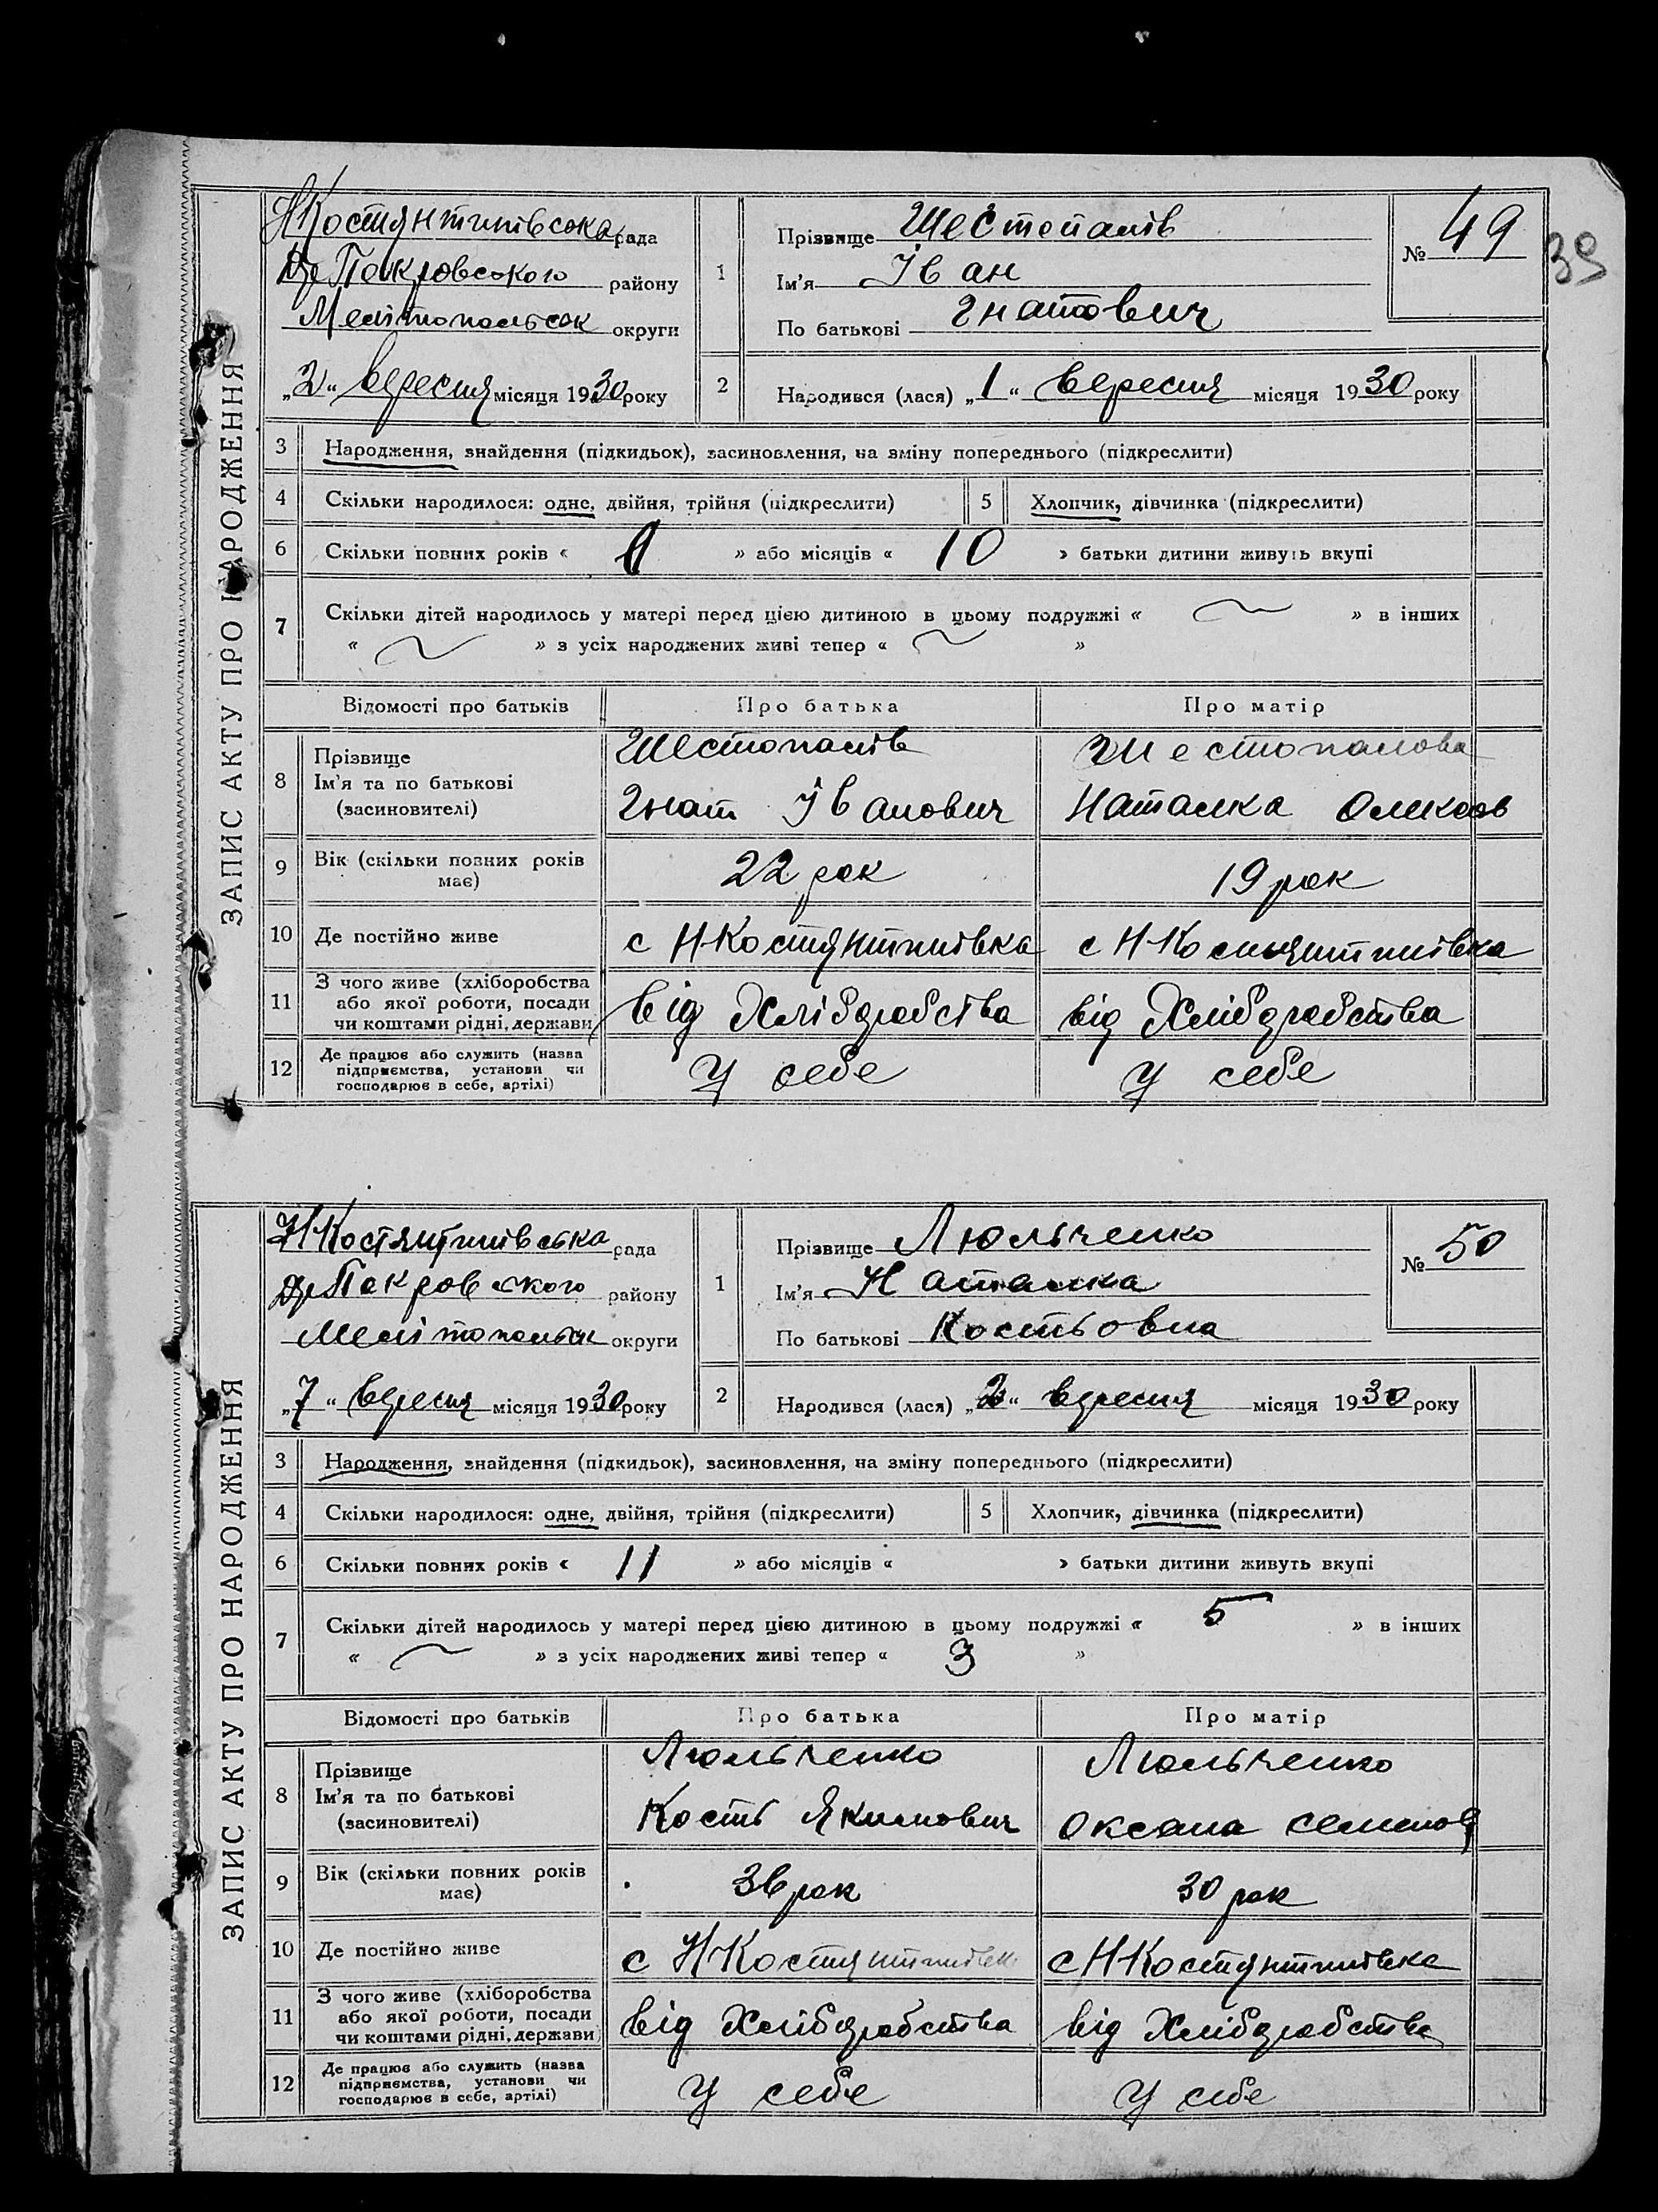 ЗАПИС АКТУ ПРО НАРОДЖЕННЯ
НКостянтинівська рада
Покровського району
Мелітопольськ округи
„2“ вересня місяця 1930 року
1
Прізвище Шестопалів
Ім'я Іван
По батькові Гнатович
№ 49
39
2
Народився (лася) „1“ вересня місяця 1930 року
3 Народження, знайдення (підкидьок), засиновлення, на зміну попереднього (підкреслити)
4 Скільки народилося: одне, двійня, трійня (підкреслити) 5 Хлопчик, дівчинка (підкреслити)
6 Скільки повних років « » або місяців « 10 » батьки дитини живуть вкупі
7 Скільки дітей народилось у матері перед цією дитиною в цьому подружжі « ~ » в інших
« ~ » з усіх народжених живі тепер « ~ »
Відомості про батьків Про батька Про матір
8 Прізвище
Ім'я та по батькові
(засиновителі)
Шестопалів
Гнат Іванович
Шестопалова
Наталка Олексов
9 Вік (скільки повних років
має)
22 рок 19 рок
10 Де постійно живе с Н-Костянтинівка с Н-Костянтинівка
11 З чого живе (хліборобства
або якої роботи, посади
чи коштами рідні, держави)
від Хліборобства від Хліборобства
12 Де працює або служить (назва
підприємства, установи чи
господарює в себе, артілі)
у себе у себе
ЗАПИС АКТУ ПРО НАРОДЖЕННЯ
НКостянтинівська рада
Покровського району
Мелітопольськ округи
„7“ вересня місяця 1930 року
1
Прізвище Люльченко
Ім'я Наталка
По батькові Костьовна
№ 50
2
Народився (лася) „2“ вересня місяця 1930 року
3 Народження, знайдення (підкидьок), засиновлення, на зміну попереднього (підкреслити)
4 Скільки народилося: одне, двійня, трійня (підкреслити) 5 Хлопчик, дівчинка (підкреслити)
6 Скільки повних років « 11 » або місяців « » батьки дитини живуть вкупі
7 Скільки дітей народилось у матері перед цією дитиною в цьому подружжі « 5 » в інших
« ~ » з усіх народжених живі тепер « 3 »
Відомості про батьків Про батька Про матір
8 Прізвище
Ім'я та по батькові
(засиновителі)
Люльченко
Кость Якимович
Люльченко
Оксана Семенов
9 Вік (скільки повних років
має)
36 рок 30 рок
10 Де постійно живе с НКостянтинівк с НКостянтинівка
11 З чого живе (хліборобства
або якої роботи, посади
чи коштами рідні, держави)
від Хліборобства від Хліборобства
12 Де працює або служить (назва
підприємства, установи чи
господарює в себе, артілі)
у себе у себе